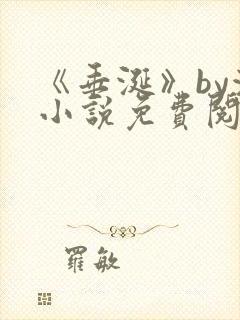 《垂涎》by
小説免費閱
羅敏